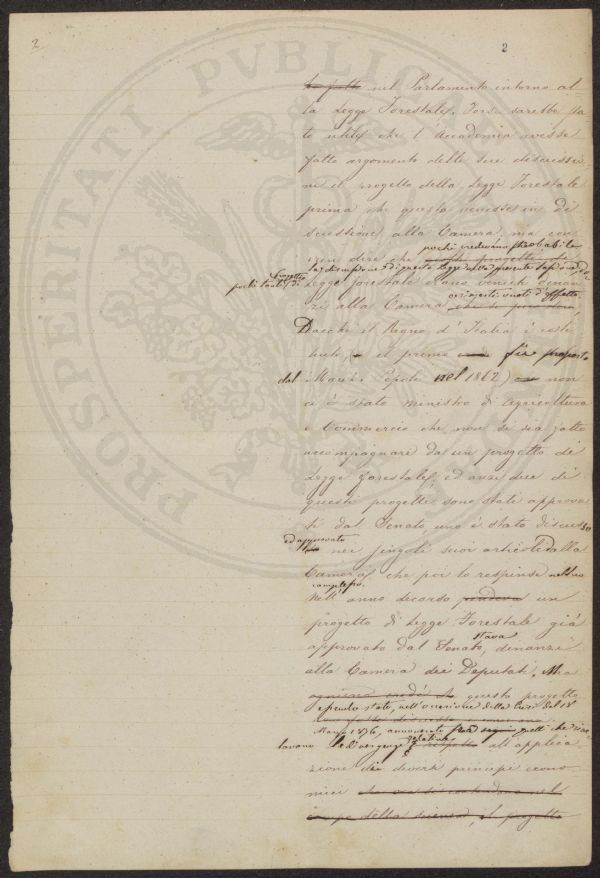 2
2
PROSPERITATI PVBLICAE
ha fatto nel Parlamento intorno al-
la Legge Forestale. Forse sarebbe sta-
to utile che l'Accademia avesse
fatto argomento delle sue discussio-
ni il progetto della Legge Forestale
prima che questo venisse in di-
scussione alla Camera, ma con-
pochi credevano probabile
vien dire che
la discussione di questa legge
progetti
Legge forestale erano venuti dinan-
zi alla Camera
ed rimasti vuoti d'effetto
Dacchè il Regno d'Italia è costi-
tuito, e il primo fu proposto
dal March. Pepoli nel 1862) non
ci è stato ministro di Agricoltura
e Commercio che non si sia fatto
accompagnare da un progetto di
Legge forestale, ed anzi due di
questi progetti sono stati approva-
ti dal Senato, uno è stato discusso
ed approvato
nei singoli suoi articoli dalla
Camera che poi lo respinse nel suo
complesso.
Nell'anno decorso pendeva un
progetto di Legge Forestale già
approvato dal Senato, dinanzi
stava
alla Camera dei Deputati. Ma
questo progetto
essendo stato, nell'occasione della Crisi del 18
Marzo 1876, annoverato fra quelli che rive-
lavano le divergenze relative all'applica-
zione dei diversi principi econo-
mici che
della scienza, il progetto